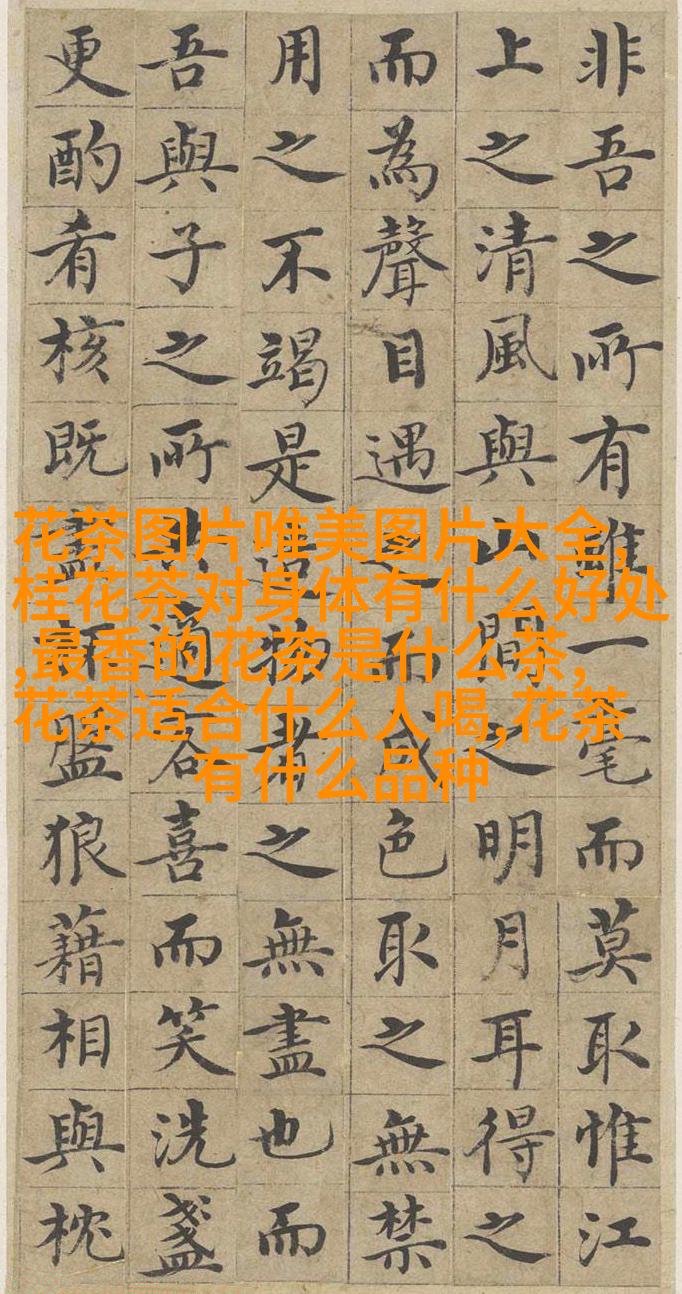 非吾之所有雖一毫而莫取惟江
上之清風與山間之明月耳得之
而為聲目遇之而成色取之無禁
用之不竭是造物者之無盡也而
吾與子之所共適客喜而笑洗盞
更酌肴核既盡杯盤狼藉相與枕
花茶图片唯美图片大全,
桂花茶对身体有什么好处
,最香的花茶是什么茶,
花茶适合什么人喝,花茶
有什么品种